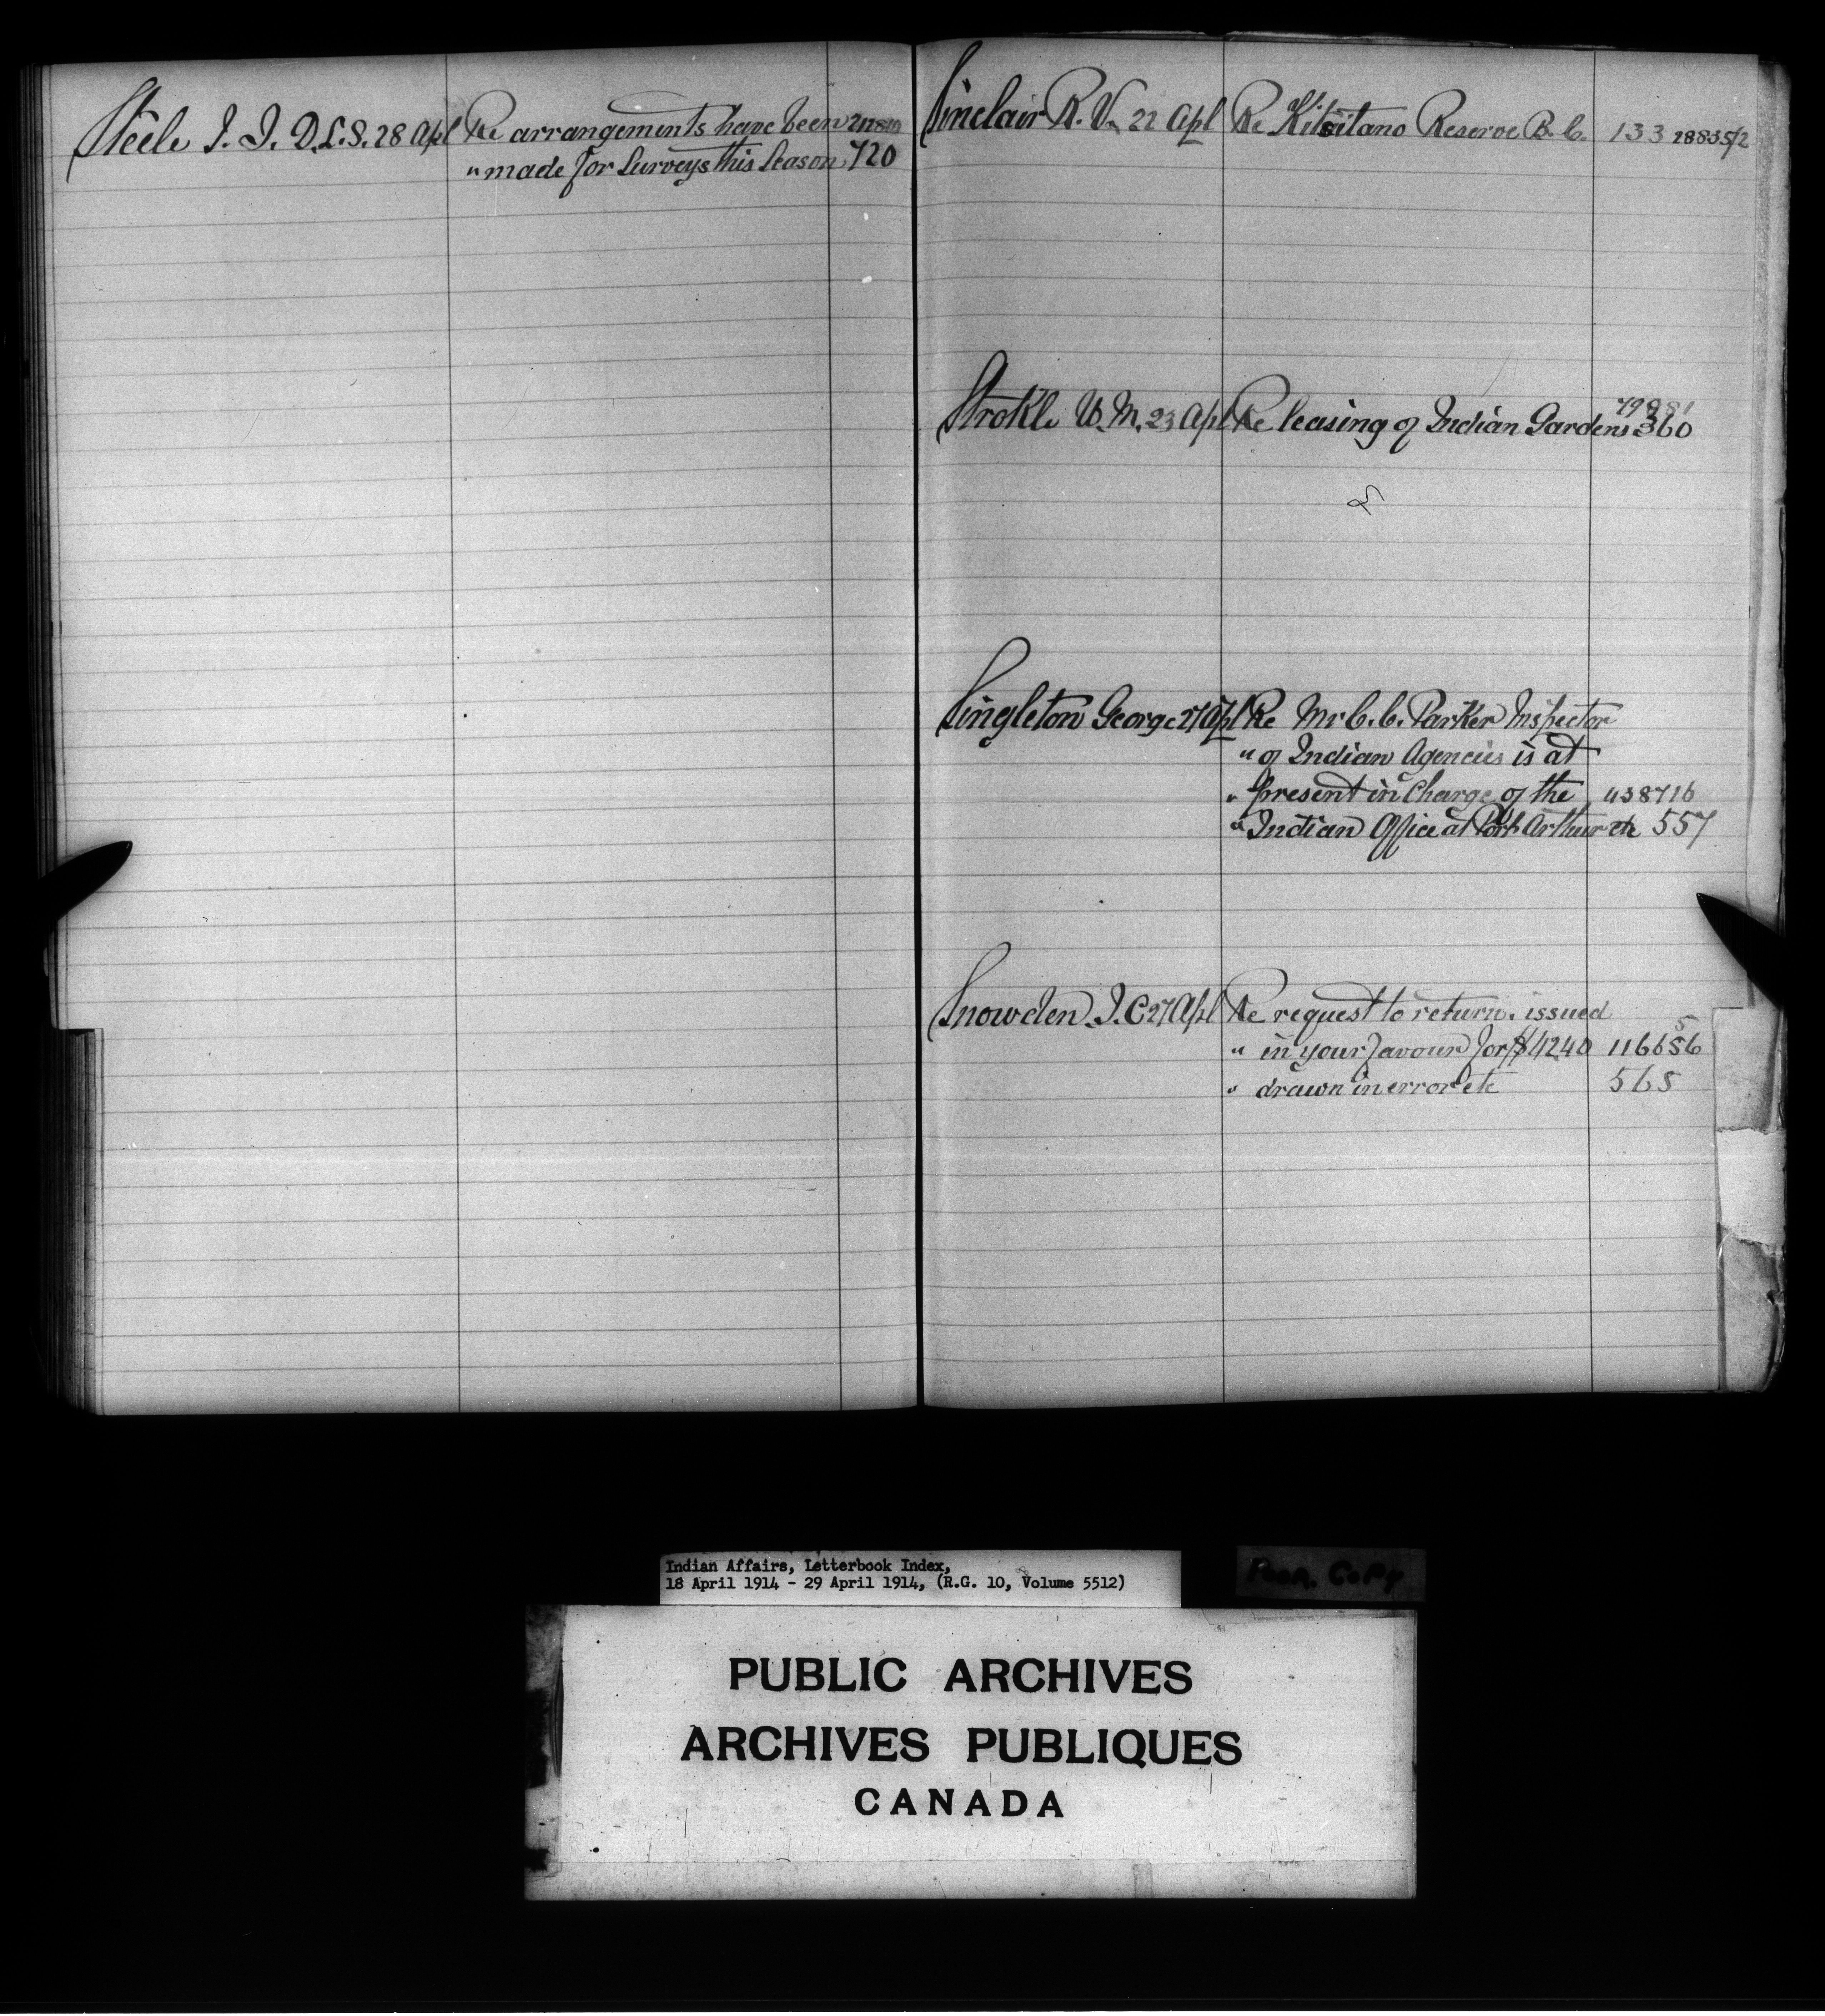 Steele I. I. D.L.S. 28 Apl Re arrangements have been
" made for Surveys this Season 720
Sinclair R. V. 22 Apl Re Kitsitano Reserve B.C. 133 28835/2
Strokle W. M. 23 Apl Re leasing of Indian Gardens 360
Singleton George 27 Apl Re Mr C. C. Parker Inspector
" of Indian Agencies is at
" present in Charge of the 438716
" Indian Office at Port Arthur etc 557
Snowden J. C 27 Apl Re request to return. issued
" in your favour for $4240
" drawn in error etc 565
Indian Affairs, Letterbook Index,
18 April 1914 - 29 April 1914, (R.G. 10, Volume 5512)
Poor Copy
PUBLIC ARCHIVES
ARCHIVES PUBLIQUES
CANADA